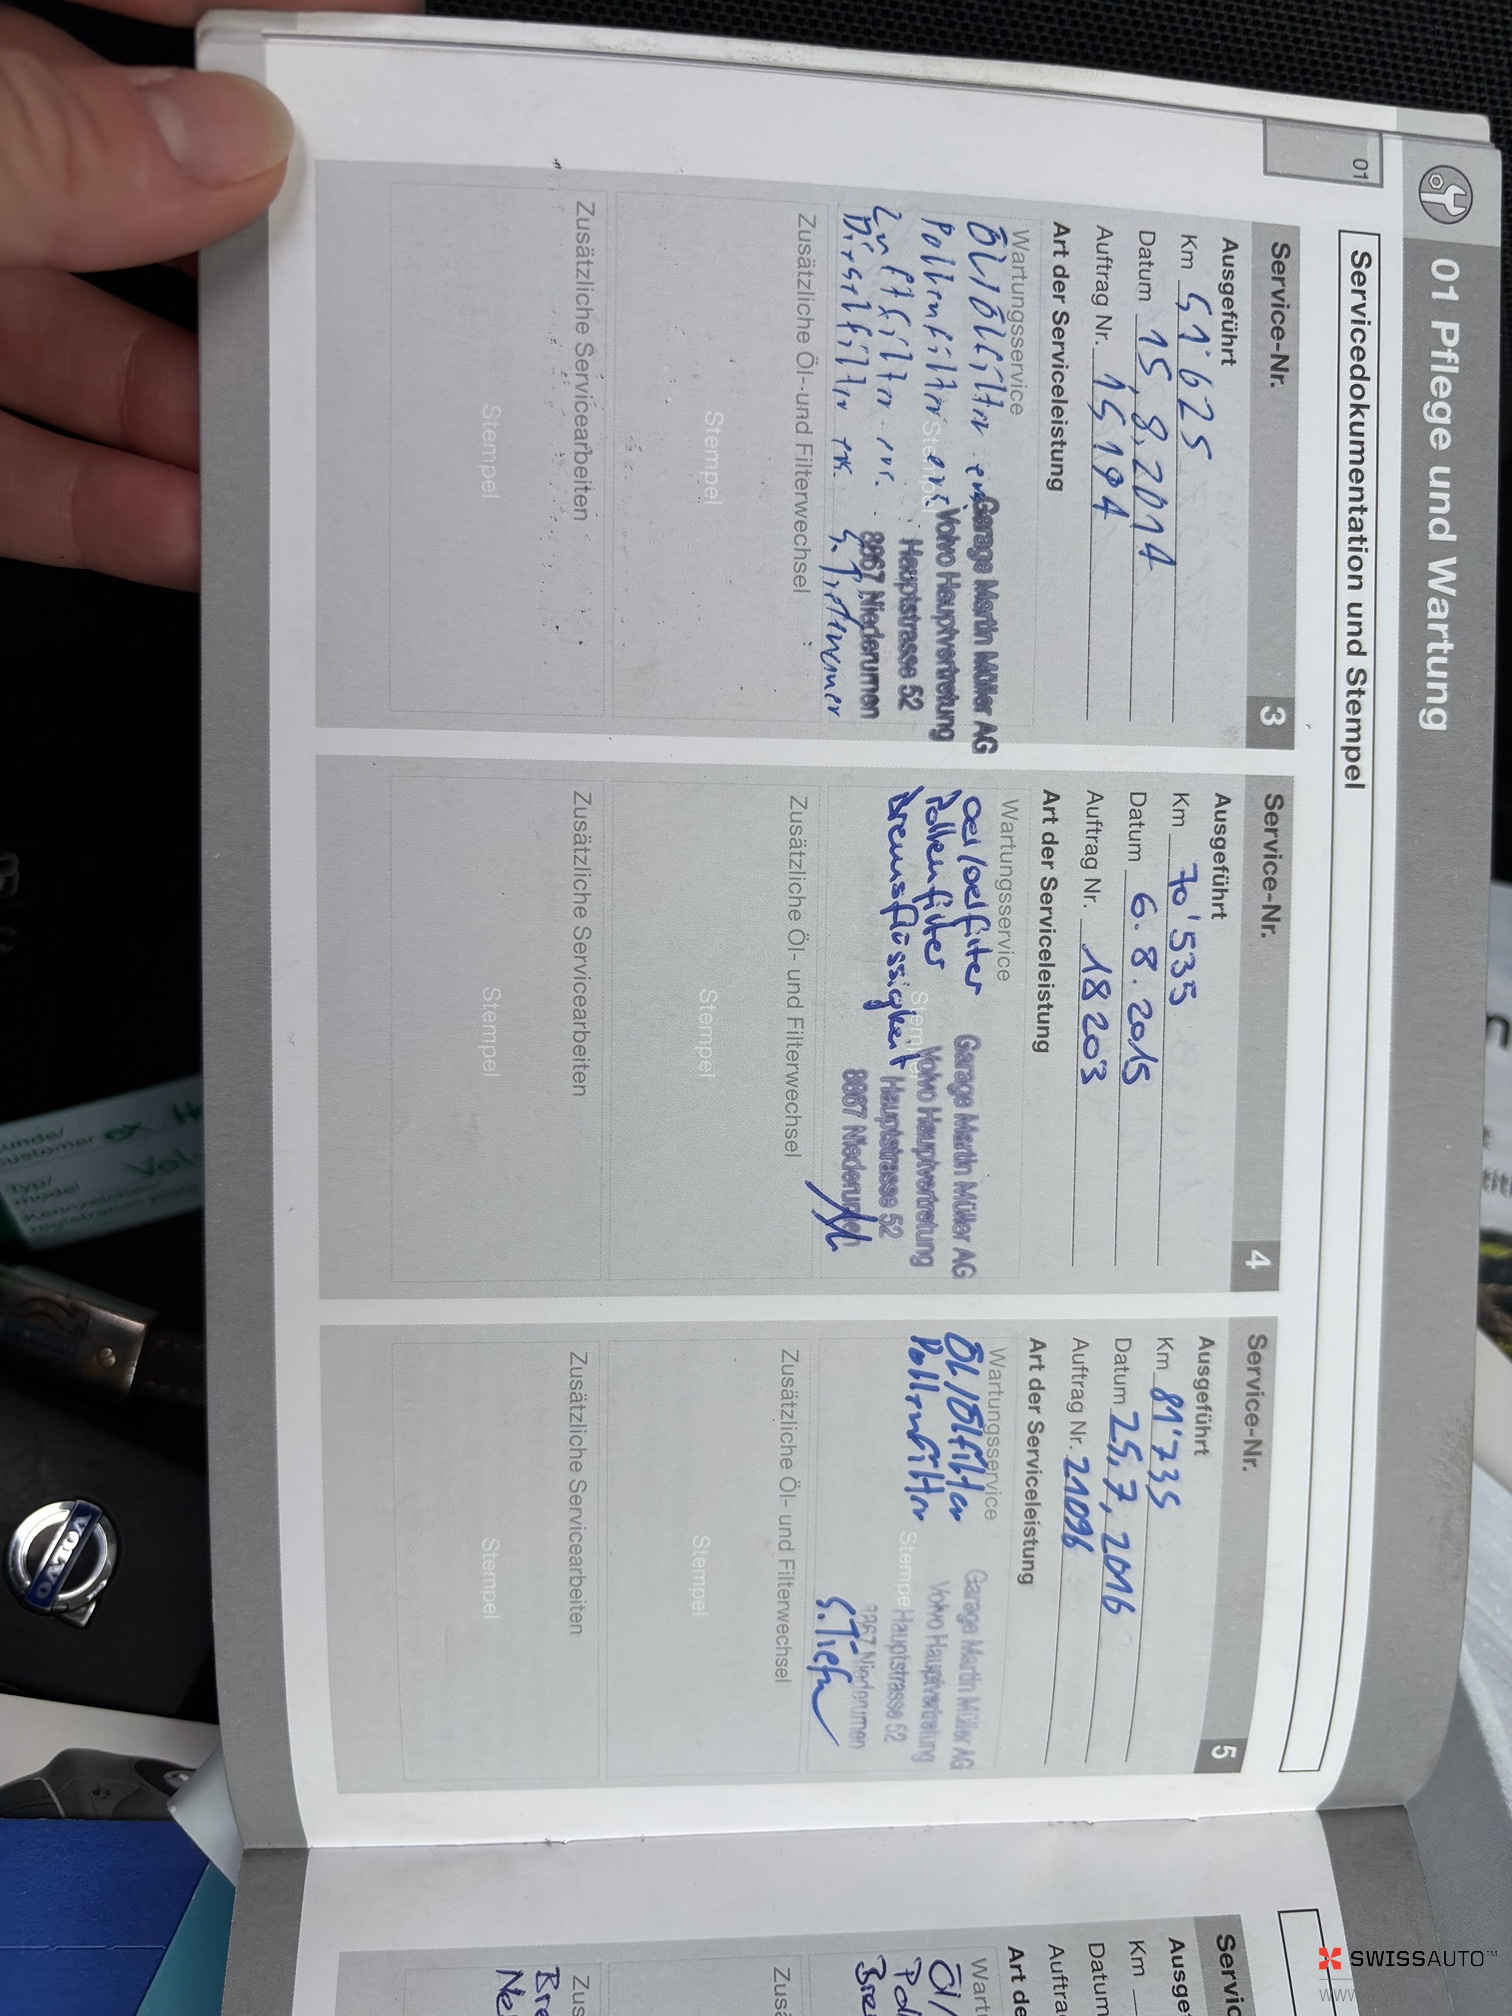 01 Pflege und Wartung
01
Servicedokumentation und Stempel
Service-Nr. 3
Ausgeführt
Km 51'625
Datum 15.8.2014
Auftrag Nr. 15194
Art der Serviceleistung
Wartungsservice
ÖL/Ölfilter
Pollenfilter
Luftfilter
Dieselfilter
Stempel
Garage Martin Müller AG
Volvo Hauptvertretung
Hauptstrasse 52
8867 Niederurnen
Zusätzliche Öl- und Filterwechsel
Stempel
Zusätzliche Servicearbeiten
Stempel
Service-Nr. 4
Ausgeführt
Km 70'535
Datum 6.8.2015
Auftrag Nr. 18203
Art der Serviceleistung
Wartungsservice
Oel/Oelfilter
Pollenfilter
Bremsflüssigkeit
Stempel
Garage Martin Müller AG
Volvo Hauptvertretung
Hauptstrasse 52
8867 Niederurnen
Zusätzliche Öl- und Filterwechsel
Stempel
Zusätzliche Servicearbeiten
Stempel
Service-Nr. 5
Ausgeführt
Km 81'735
Datum 25.7.2016
Auftrag Nr. 21096
Art der Serviceleistung
Wartungsservice
ÖL/Ölfilter
Pollenfilter
Stempel
Garage Martin Müller AG
Volvo Hauptvertretung
Hauptstrasse 52
8867 Niederurnen
Zusätzliche Öl- und Filterwechsel
Stempel
Zusätzliche Servicearbeiten
Stempel
Km
Datum
Art de
Kunde/
customer
Typ/
model
Kennzeichen/
VOLVO
SWISSAUTO™